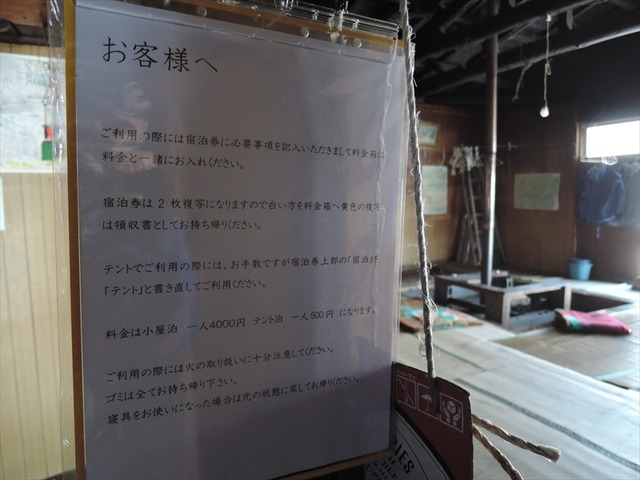 お客様へ
ご利用の際には宿泊券に必要事項を記入いただきまして料金箱に
料金と一諸にお入れください。
宿泊券は2枚複写になりますので白い方を料金箱へ黄色の複写
は領収書としてお持ち帰りください。
テントでご利用の際には、お手数ですが宿泊券上部の「宿泊」を
「テント」と書き直してご利用ください。
料金は小屋泊 一人4000円 テント泊 一人500円 になります。
ご利用の際には火の取り扱いに十分注意してください。
ゴミは全てお持ち帰り下さい。
寝具をお使いになった場合は元の状態に戻してお帰りください。